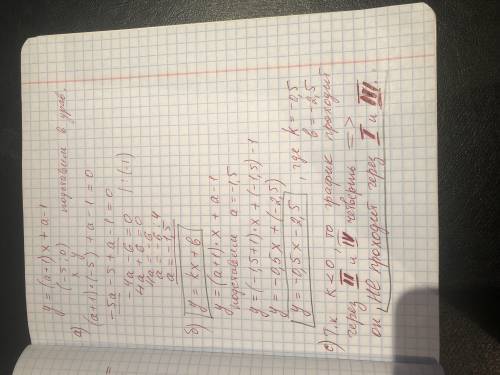 y = (a+1)x + a-1
а) (-5; 0) подставим в урав.
x y
(a+1)·(-5) + a - 1 = 0
-5a - 5 + a - 1 = 0
-4a - 6 = 0 | : (-1)
4a + 6 = 0
4a = -6
a = -6:4
a = -1,5
y = kx + b
б) y = (a+1)·x + a-1
подставим a = -1,5
y = (-1,5+1)·x + (-1,5) - 1
y = -0,5x + (-2,5)
y = -0,5x - 2,5, где k = -0,5
b = -2,5
с) Т.к K<0, то график проходит
через II и IV четверть =>
он НЕ проходит через I и III.